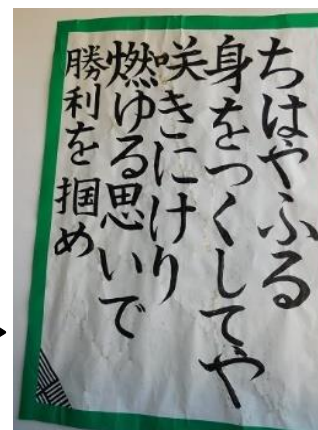 ちはやふる
身をつくしてや
咲きにけり
燃ゆる思いで
勝利を掴め